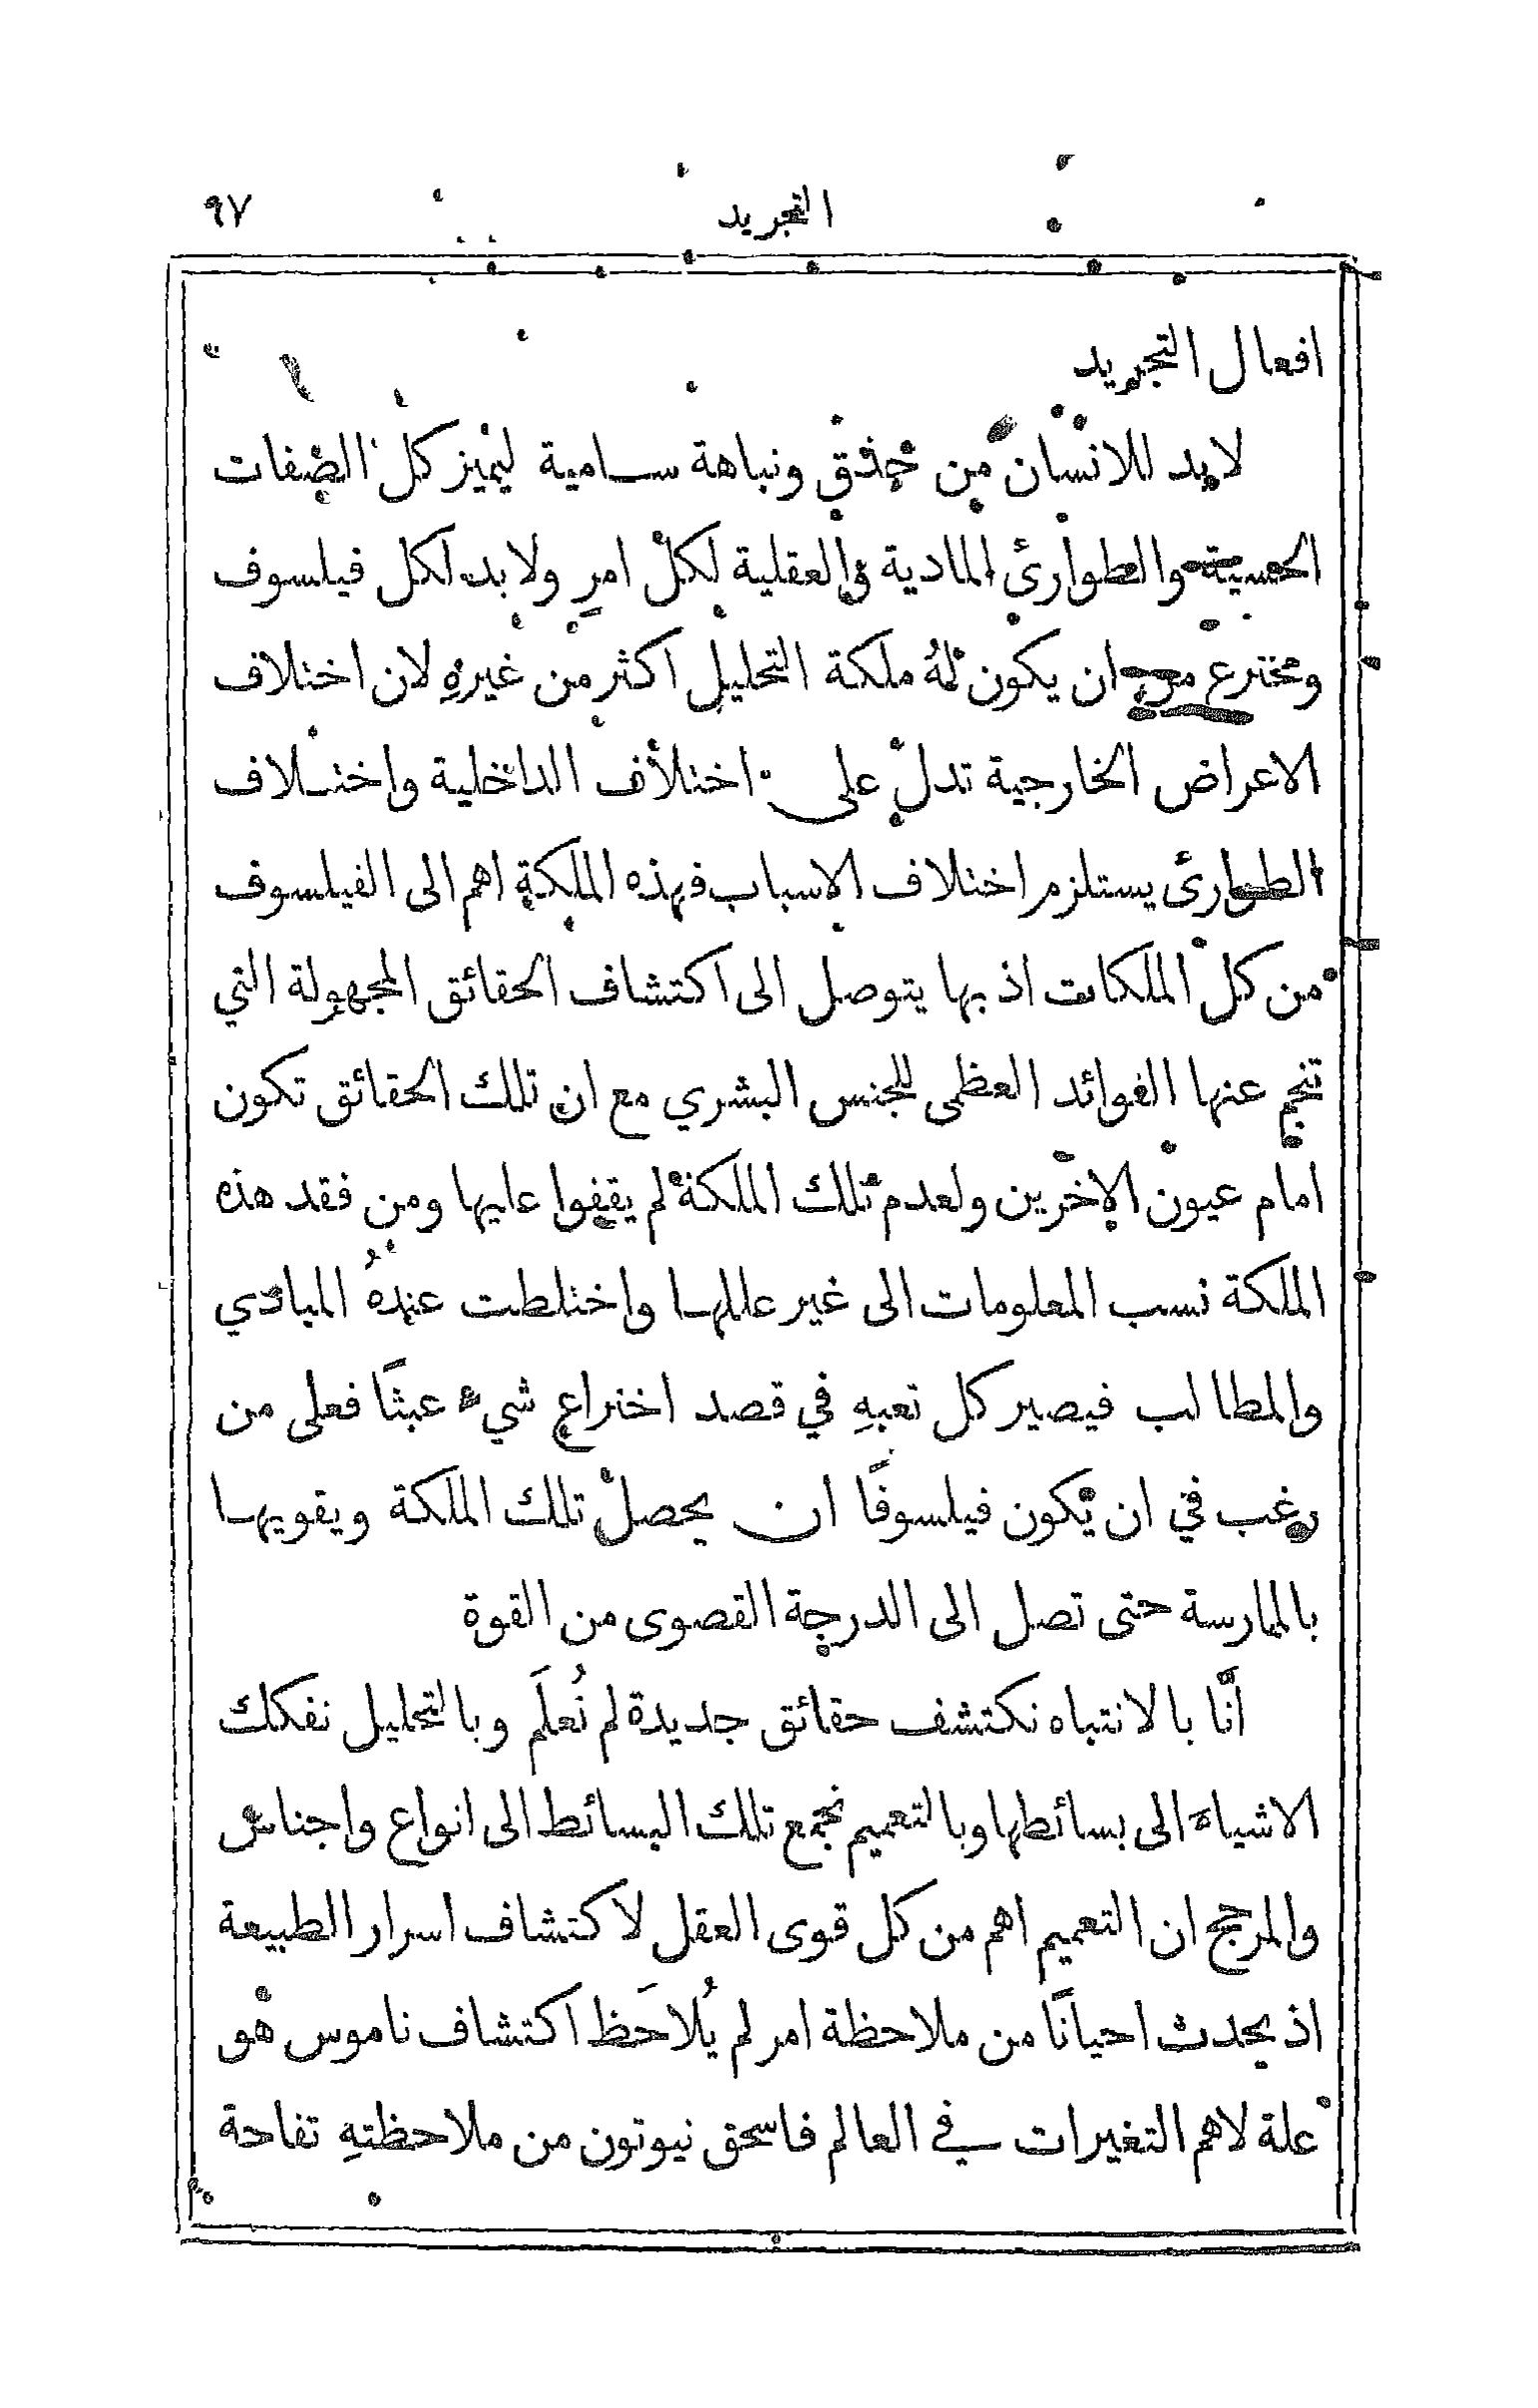 التجريد ٩٧
افعال التجريد
لا بد للانسان من حذق ونباهة سامية ليميز كل الصفات
الحسية والطوارئ المادية والعقلية لكل امرٍ ولا بد لكل فيلسوف
ومخترع من ان يكون لهُ ملكة التحليل اكثر من غيرهِ لان اختلاف
الاعراض الخارجية تدل على اختلاف الداخلية واختلاف
الطوارئ يستلزم اختلاف الاسباب فهذه الملكة اهم الى الفيلسوف
من كل الملكات اذ بها يتوصل الى اكتشاف الحقائق المجهولة التي
تنجم عنها الفوائد العظمى للجنس البشري مع ان تلك الحقائق تكون
امام عيون الاخرين ولعدم تلك الملكة لم يقفوا عليها ومن فقد هذه
الملكة نسب المعلومات الى غير عللها واختلطت عندهُ المبادي
والمطالب فيصير كل تعبهِ في قصد اختراع شيء عبثًا فعلى من
رغب في ان يكون فيلسوفًا ان يحصل تلك الملكة ويقويها
بالممارسة حتى تصل الى الدرجة القصوى من القوة
أنّا بالانتباه نكتشف حقائق جديدة لم نُعلَم وبالتحليل نفكك
الاشياء الى بسائطها وبالتعميم نجمع تلك البسائط الى انواع واجناس
والمرجح ان التعميم اهم من كل قوى العقل لاكتشاف اسرار الطبيعة
اذ يحدث احيانًا من ملاحظة امر لم يُلاحَظ اكتشاف ناموس هو
علة لاهم التغيرات في العالم فاسحق نيوتون من ملاحظتهِ تفاحة